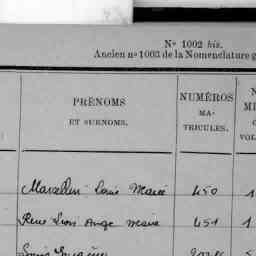 N° 1002 bis.
Ancien n° 1003 de la Nomenclature g
PRÉNOMS
ET SURNOMS.
NUMÉROS
MA-
TRICULES.
N
M
VOL
Marcellin Louis Marie 450 1
René Léon Ange Marie 451 1
Louis